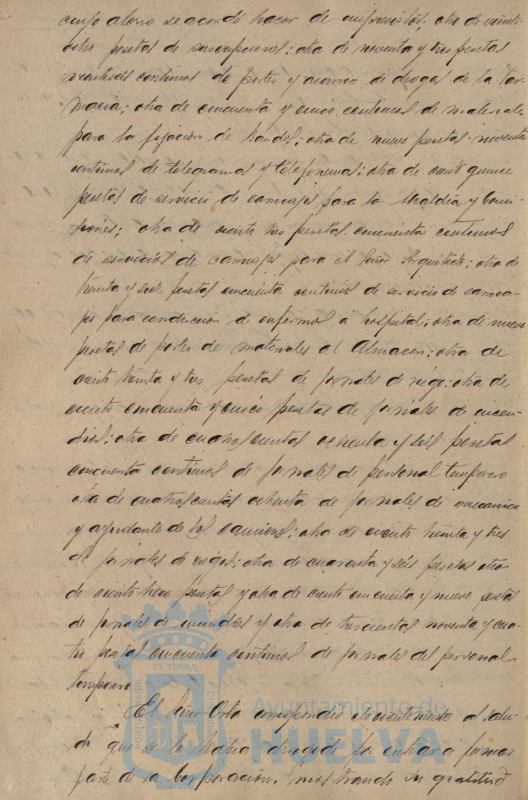 cuyo abono se acordó hacer de imprevistos; otra de veinti-
ocho pesetas de suscripciones; otra de noventa y tres pesetas
céntimos de portes y acarreo de drogas de la Far-
macia; otra de cincuenta y cinco céntimos de materiales
para la fijación de bandos; otra de nueve pesetas noventa
céntimos de telegramas y telefonemas; otra de ciento quince
pesetas de servicio de carruajes para la Alcaldía y Comi-
siones; otra de veinte tres pesetas cincuenta céntimos
de servicios de carruajes para el Señor Arquitecto; otra de
treinta y seis pesetas cincuenta céntimos de servicio de carrua-
jes para conducción de enfermos a hospital; otra de nueve
pesetas de portes de materiales al Almacen; otra de
ciento treinta y tres pesetas de jornales de riego; otra de
ciento cincuenta y cinco pesetas de jornales de incen-
dios; otra de cuatrocientas ochenta y seis pesetas
cincuenta céntimos de jornales de personal temporero
otra de cuatrocientas ochenta de jornales de mecánico
y ayudante de los camiones; otra de ciento treinta y tres
de jornales de; otra de cuarenta y seis pesetas otra
de veinte pesetas y otra de ciento cincuenta y nueve pesetas
de jornales de incendios y otra de trescientas noventa y cua-
tro pesetas cincuenta céntimos de jornales del personal
temporero.
El Señor Orta correspondió al salu-
do que se le había dirigido por entrar a formar
parte de la Corporación, mostrando su gratitud
Ayuntamiento de
HUELVA